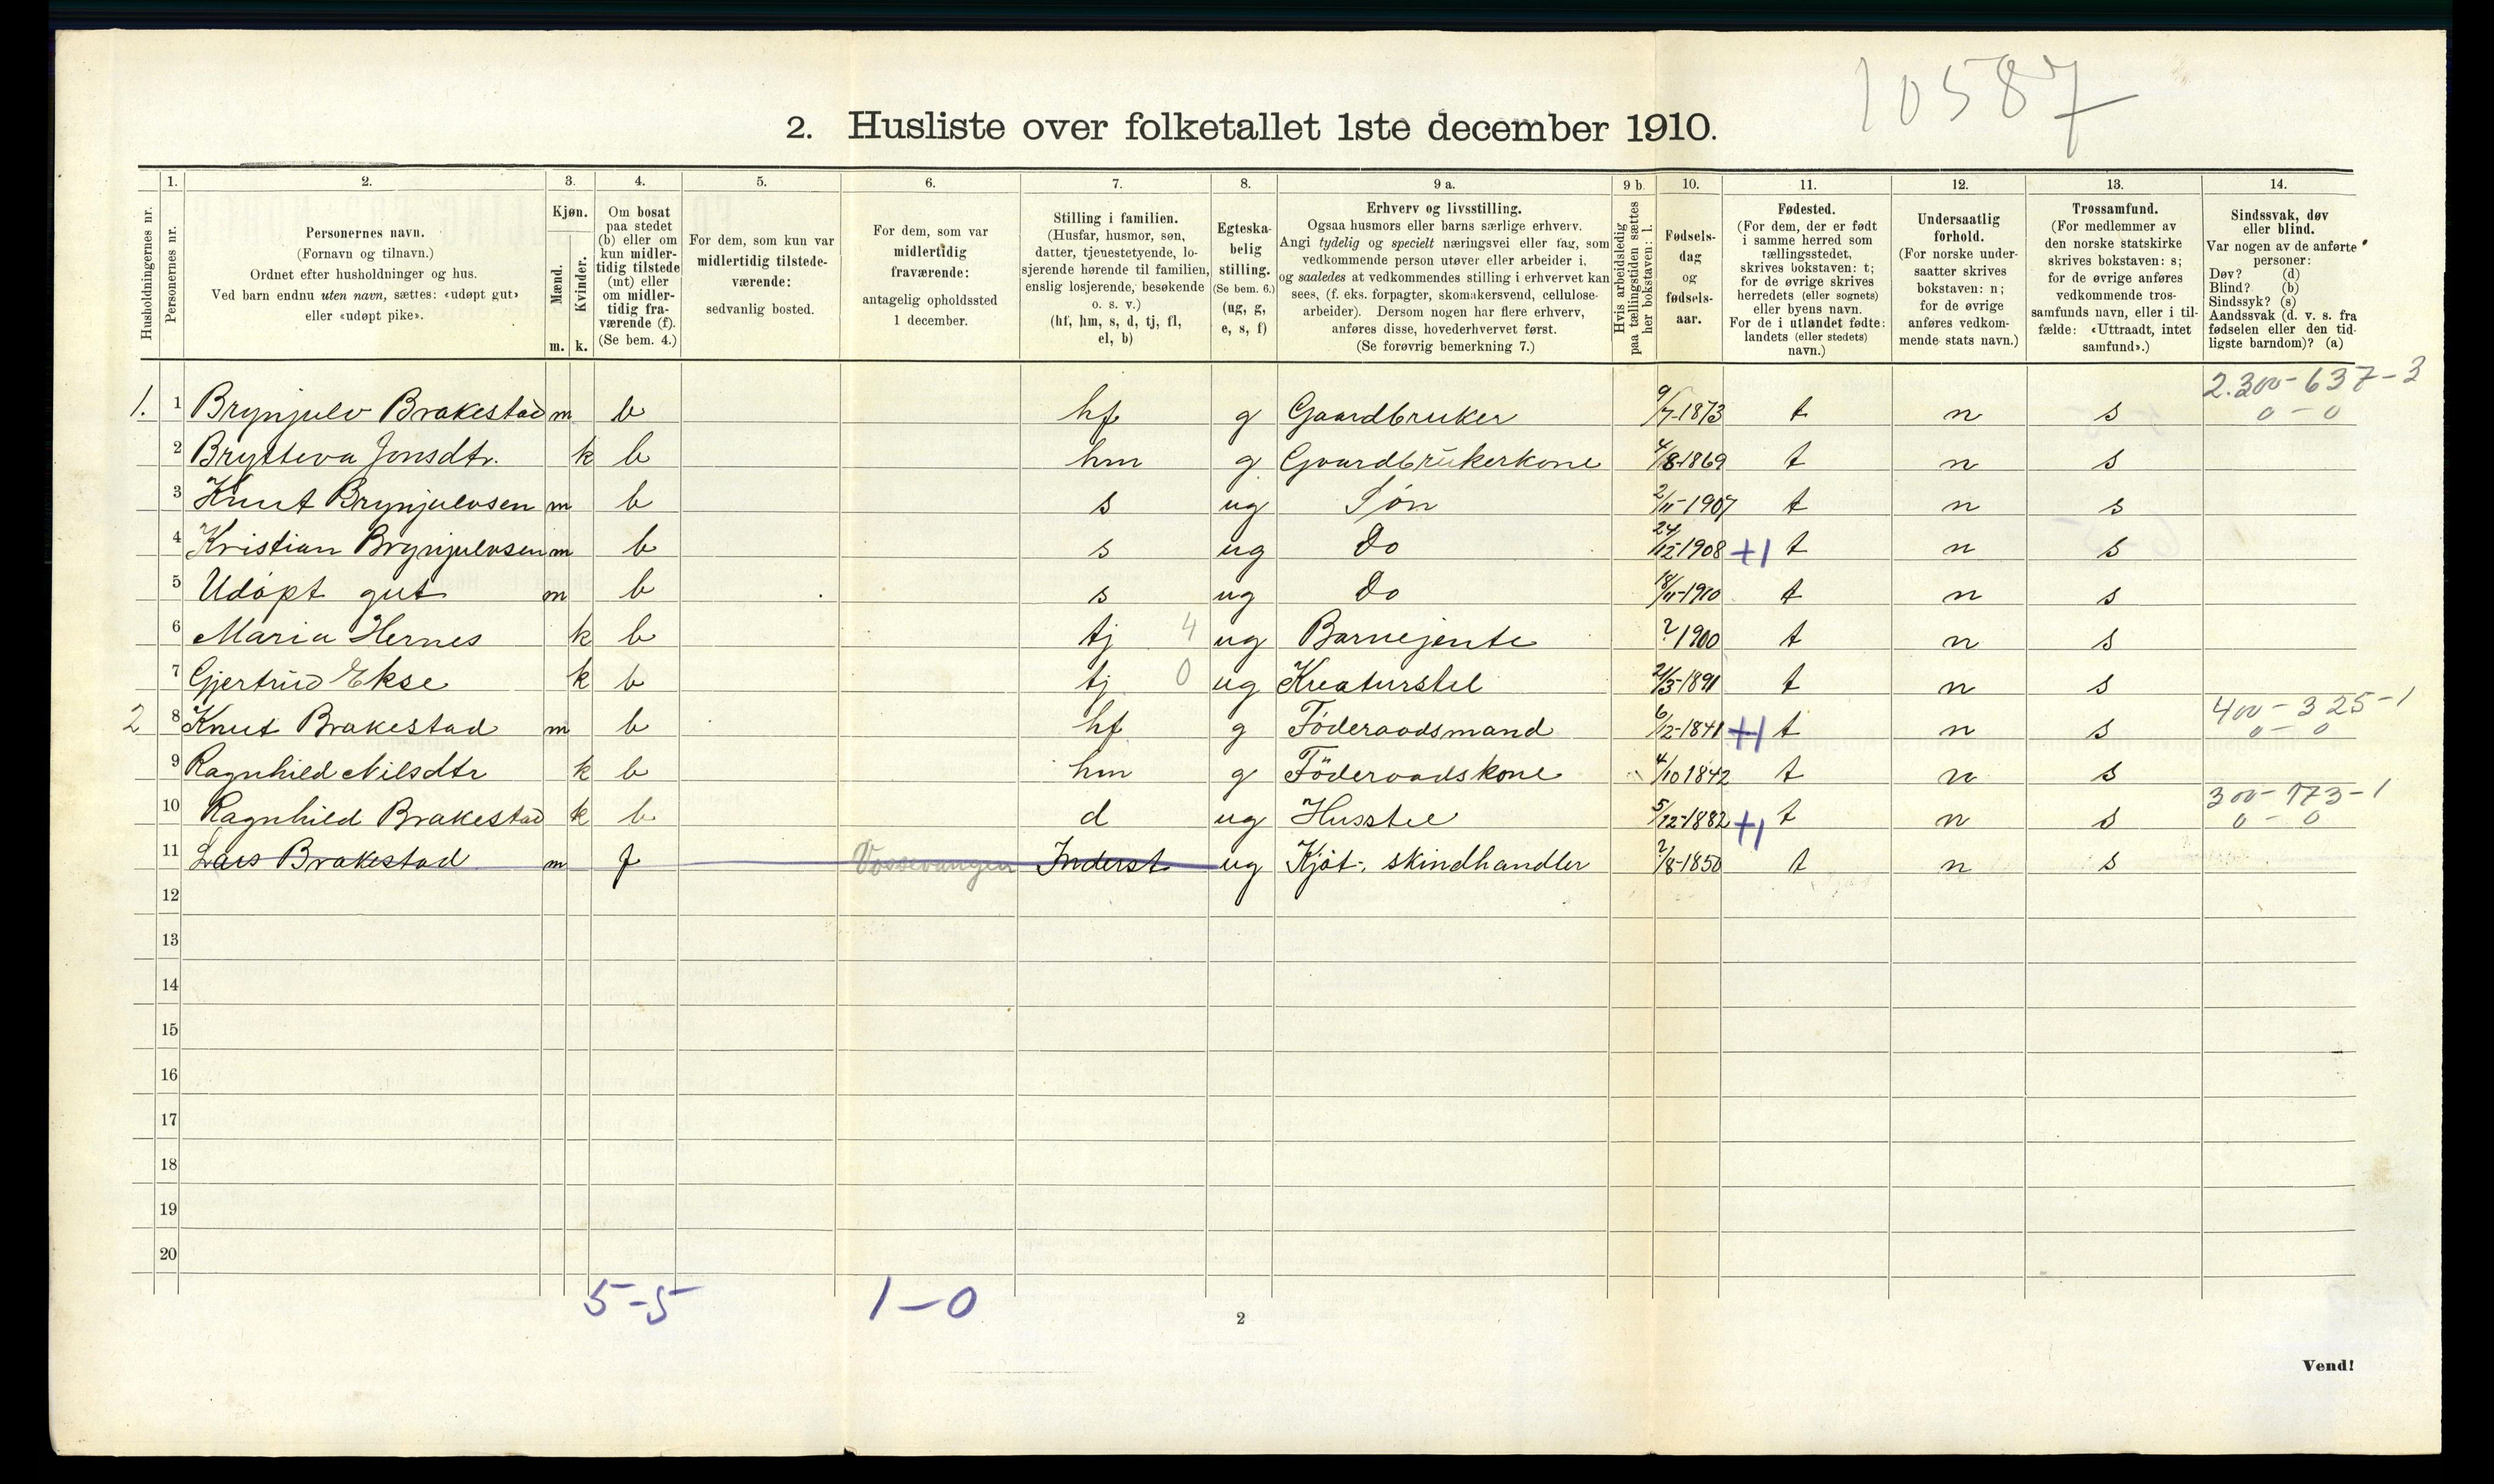 10587
2. Husliste over folketallet 1ste december 1910.
Husholdningernes nr.
1.
Personernes nr.
2.
Personernes navn.
(Fornavn og tilnavn.)
Ordnet efter husholdninger og hus.
Ved barn endnu uten navn, sættes: «udøpt gut»
eller «udøpt pike».
3.
Kjøn.
Mænd.
Kvinder.
m. k.
4.
Om bosat
paa stedet
(b) eller om
kun midler-
tidig tilstede
(mt) eller
om midler-
tidig fra-
værende (f).
(Se bem. 4.)
5.
For dem, som kun var
midlertidig tilstede-
værende:
sedvanlig bosted.
6.
For dem, som var
midlertidig
fraværende:
antagelig opholdssted
1 december.
7.
Stilling i familien.
(Husfar, husmor, søn,
datter, tjenestetyende, lo-
sjerende hørende til familien,
enslig losjerende, besøkende
o. s. v.)
(hf, hm, s, d, tj, fl,
el, b)
8.
Egteska-
belig
stilling.
(Se bem. 6.)
(ug, g,
e, s, f)
9 a.
Erhverv og livsstilling.
Ogsaa husmors eller barns særlige erhverv.
Angi tydelig og specielt næringsvei eller fag, som
vedkommende person utøver eller arbeider i,
og saaledes at vedkommendes stilling i erhvervet kan
sees, (f. eks. forpagter, skomakersvend, cellulose-
arbeider). Dersom nogen har flere erhverv,
anføres disse, hovederhvervet først.
(Se forøvrig bemerkning 7.)
9 b.
Hvis arbeidsledig
paa tællingstiden sættes
her bokstaven: l.
10.
Fødsels-
dag
og
fødsels-
aar.
11.
Fødested.
(For dem, der er født
i samme herred som
tællingsstedet,
skrives bokstaven: t;
for de øvrige skrives
herredets (eller sognets)
eller byens navn.
For de i utlandet fødte:
landets (eller stedets)
navn.)
12.
Undersaatlig
forhold.
(For norske under-
saatter skrives
bokstaven: n;
for de øvrige
anføres vedkom-
mende stats navn.)
13.
Trossamfund.
(For medlemmer av
den norske statskirke
skrives bokstaven: s;
for de øvrige anføres
vedkommende tros-
samfunds navn, eller i til-
fælde: «Uttraadt, intet
samfund».)
14.
Sindssvak, døv
eller blind.
Var nogen av de anførte
personer:
Døv? (d)
Blind? (b)
Sindssyk? (s)
Aandssvak (d. v. s. fra
fødselen eller den tid-
ligste barndom)? (a)
2.300-637-3
1. 1 Brynjulv Brakestad m b hf g Gaardbruker 9/7-1873 t n s 0-0
2 Brytteva Jonsdtr. k b hm g Gaardbrukerkone 4/8-1869 t n s
3 Knut Brynjulvsen m b s ug Søn 2/11-1907 t n s
4 Kristian Brynjulvsen m b s ug do 24/12-1908 +1 t n s
5 Udøpt gut m b s ug do 18/11-1910 t n s
6 Maria Hernes k b tj 4 ug Barnejente ? 1900 t n s
7 Gjertrud Ekse k b tj 0 ug Kreaturstel 21/3-1891 t n s
400-325-1
2 8 Knut Brakestad m b hf g Föderaadsmand 6/12-1841 +1 t n s 0-0
9 Ragnhild Nilsdtr k b hm g Föderaadskone 4/10 1842 t n s
300-173-1
10 Ragnhild Brakestad k b d ug Husstel 5/12-1882 +1 t n s 0-0
11 Lars Brakestad m f Vossevangen Inderst ug Kjøt-, skindhandler 2/8-1850 t n s
12
13
14
15
16
17
18
19
20
5-5 1-0
2
Vend!